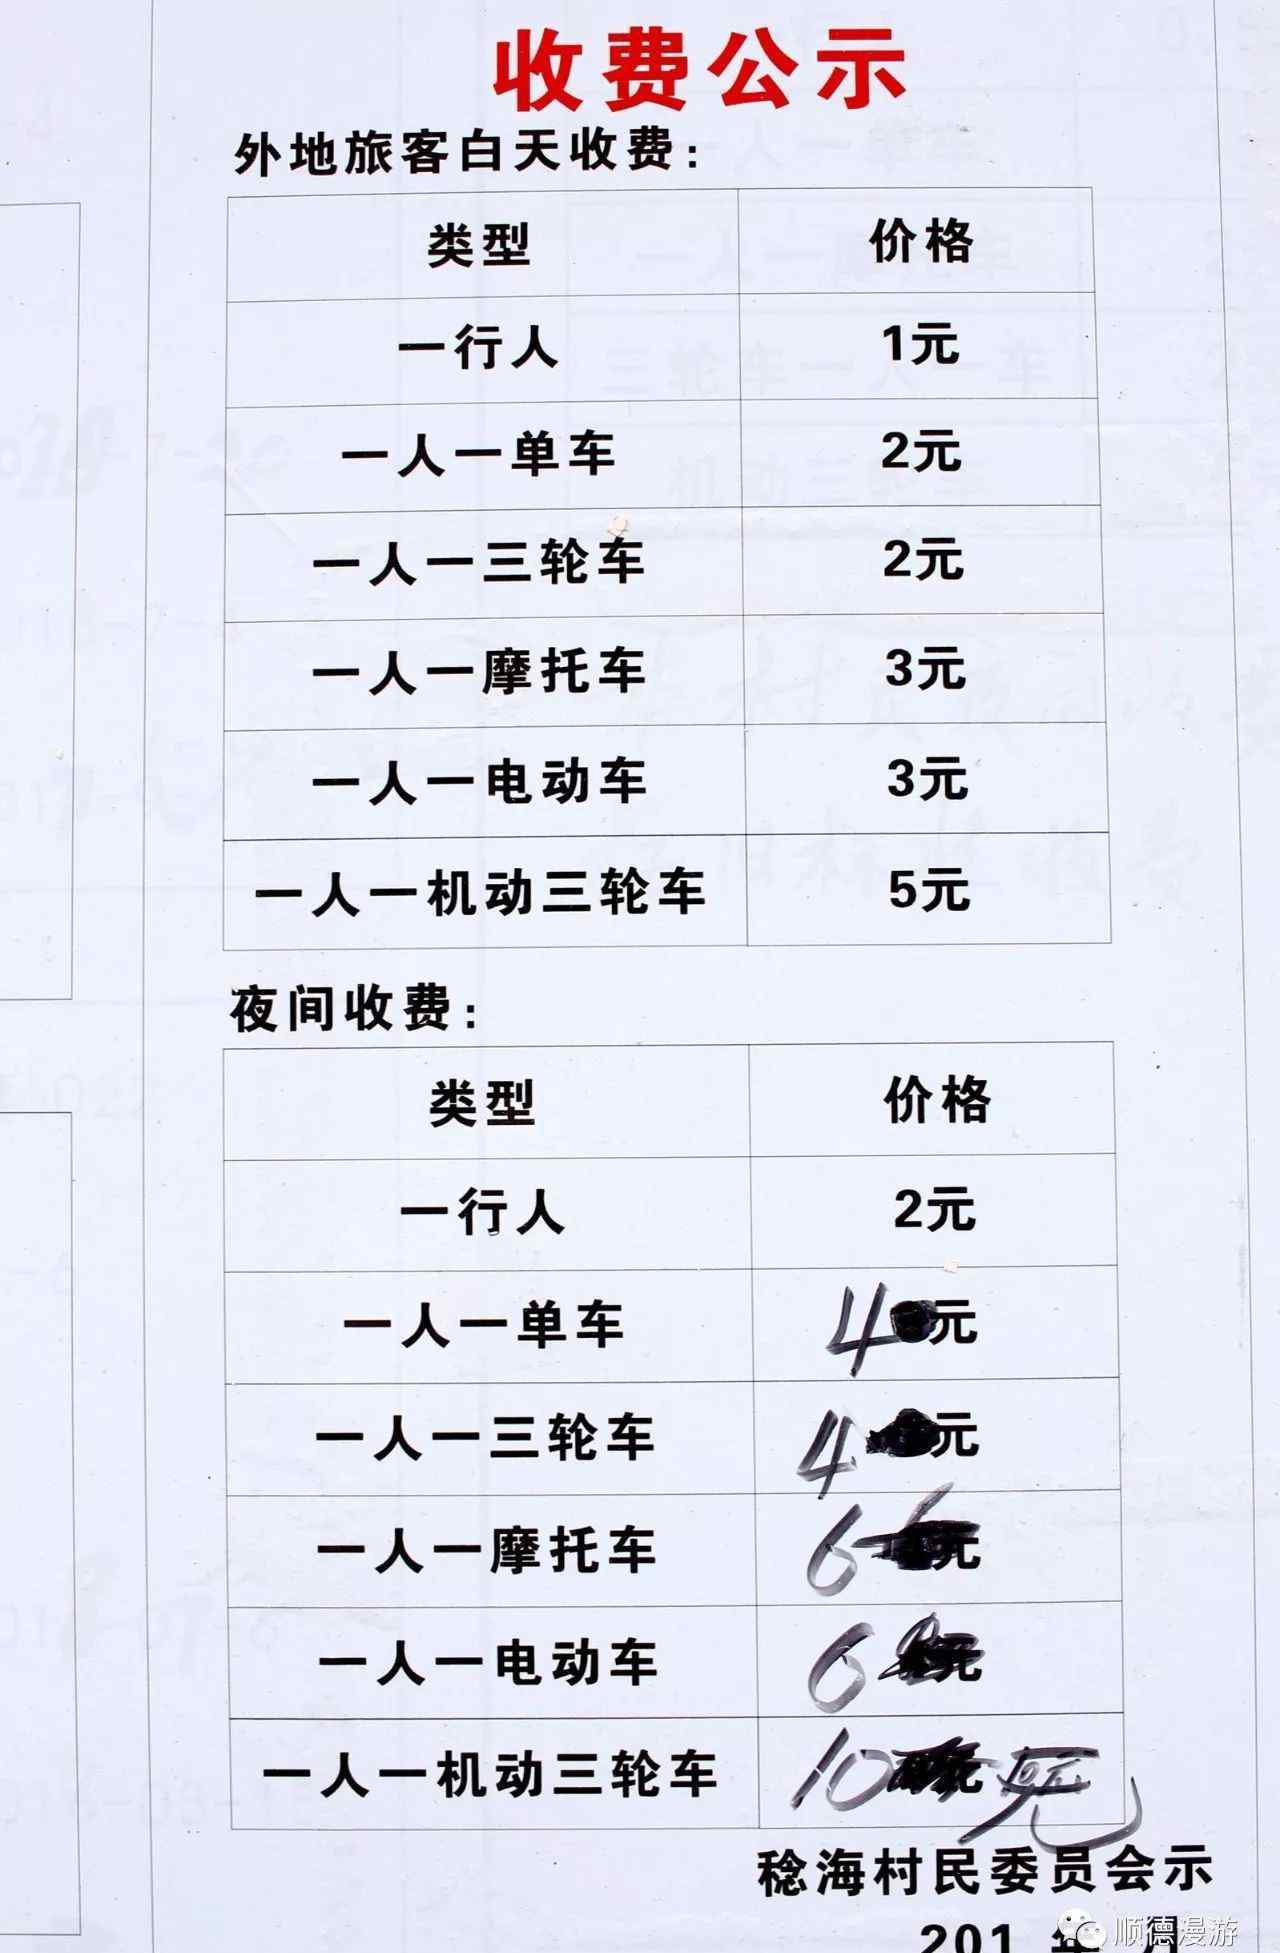 收费公示
外地旅客白天收费:
类型 价格
一行人 1元
一人一单车 2元
一人一三轮车 2元
一人一摩托车 3元
一人一电动车 3元
一人一机动三轮车 5元
夜间收费:
类型 价格
一行人 2元
一人一单车 4元
一人一三轮车 4元
一人一摩托车 6元
一人一电动车 6元
一人一机动三轮车 10元
稔海村民委员会示
201 年 月
顺德漫游